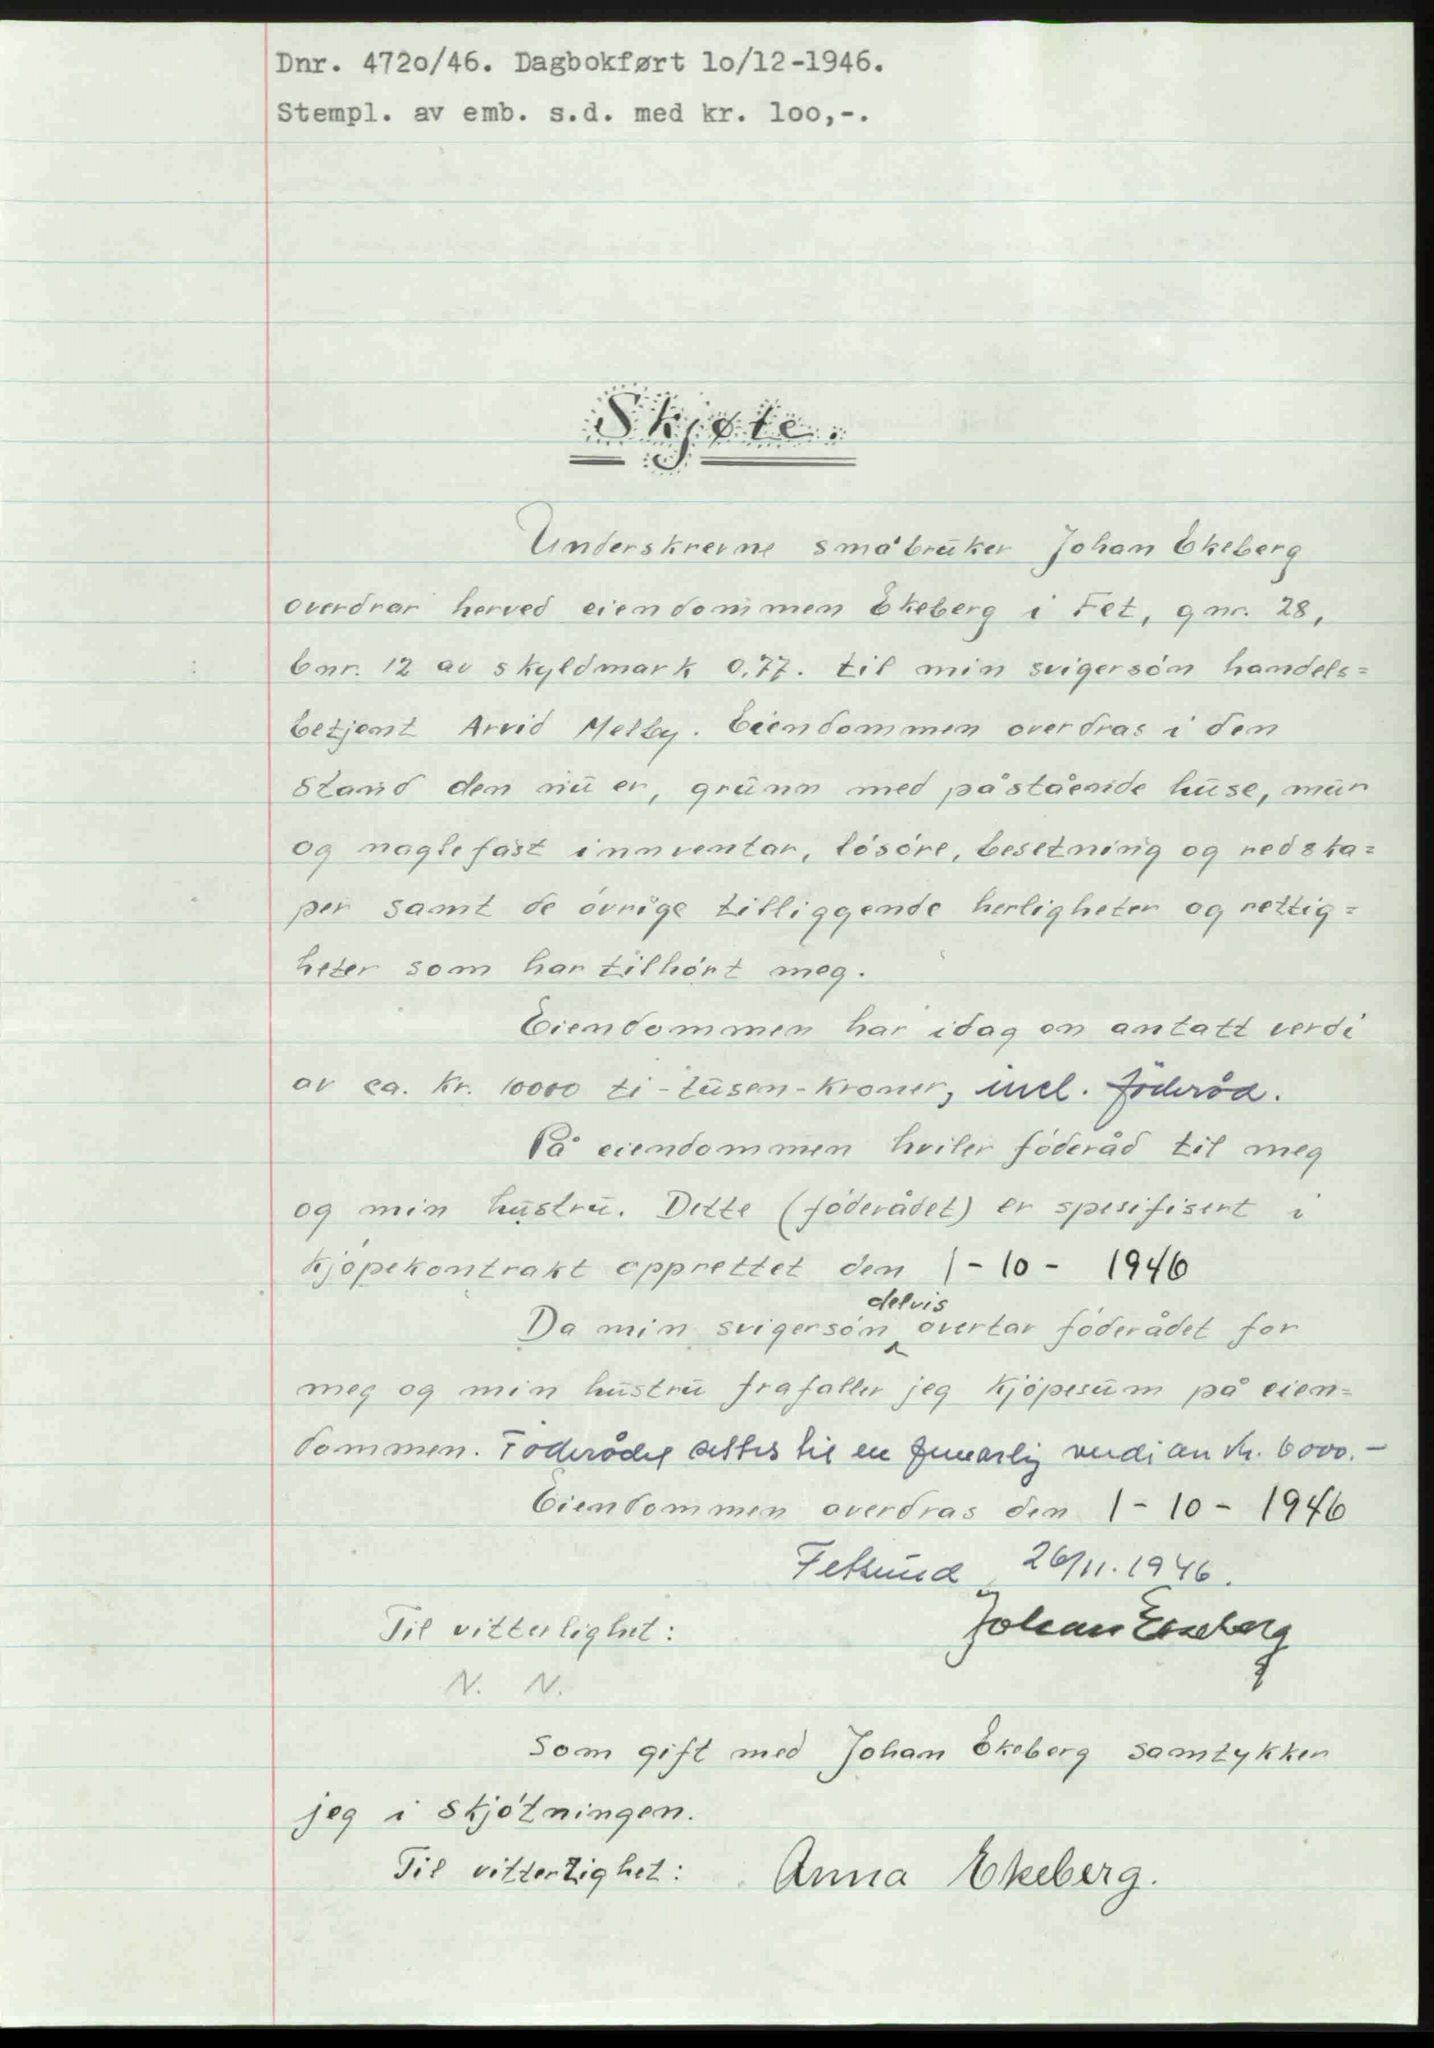 Dnr. 472o/46. Dagbokført 1o/12-1946.
Stempl. av emb. s.d. med kr. 1oo,-.
Skjøte.
Underskrevne småbruker Johan Ekeberg
overdrar herved eiendommen Ekeberg i Fet, gnr. 28,
bnr. 12 av skyldmark 0,77. til min svigersón handels=
betjent Arvid Melby. Eiendommen overdras i den
stand den nu er, grunn med påstående huse, mur
og naglefast innventar, lósóre, besetning og redska=
per samt de óvrige tilliggende herligheter og rettig=
heter som har tilhórt meg.
Eiendommen har idag en antatt verdi
av ca. kr. 10000 ti-tusen-kroner, incl. föderåd.
På eiendommen hviler fóderåd til meg
og min hustru. Dette (fóderådet) er spesifisert i
kjópekontrakt opprettet den 1-10- 1946
delvis
Da min svigersón overtar fóderådet for
meg og min hustru frafaller jeg kjópesum på eien=
dommen. Föderådet settes til en femårlig verdi av kr. 6000.-
Eiendommen overdras den 1-10-1946
Fetsund 26/11.1946.
Til vitterlighet: Johan Ekeberg
N. N.
Som gift med Johan Ekeberg samtykker
jeg i skjótningen.
Til vitterlighet: Anna Ekeberg.